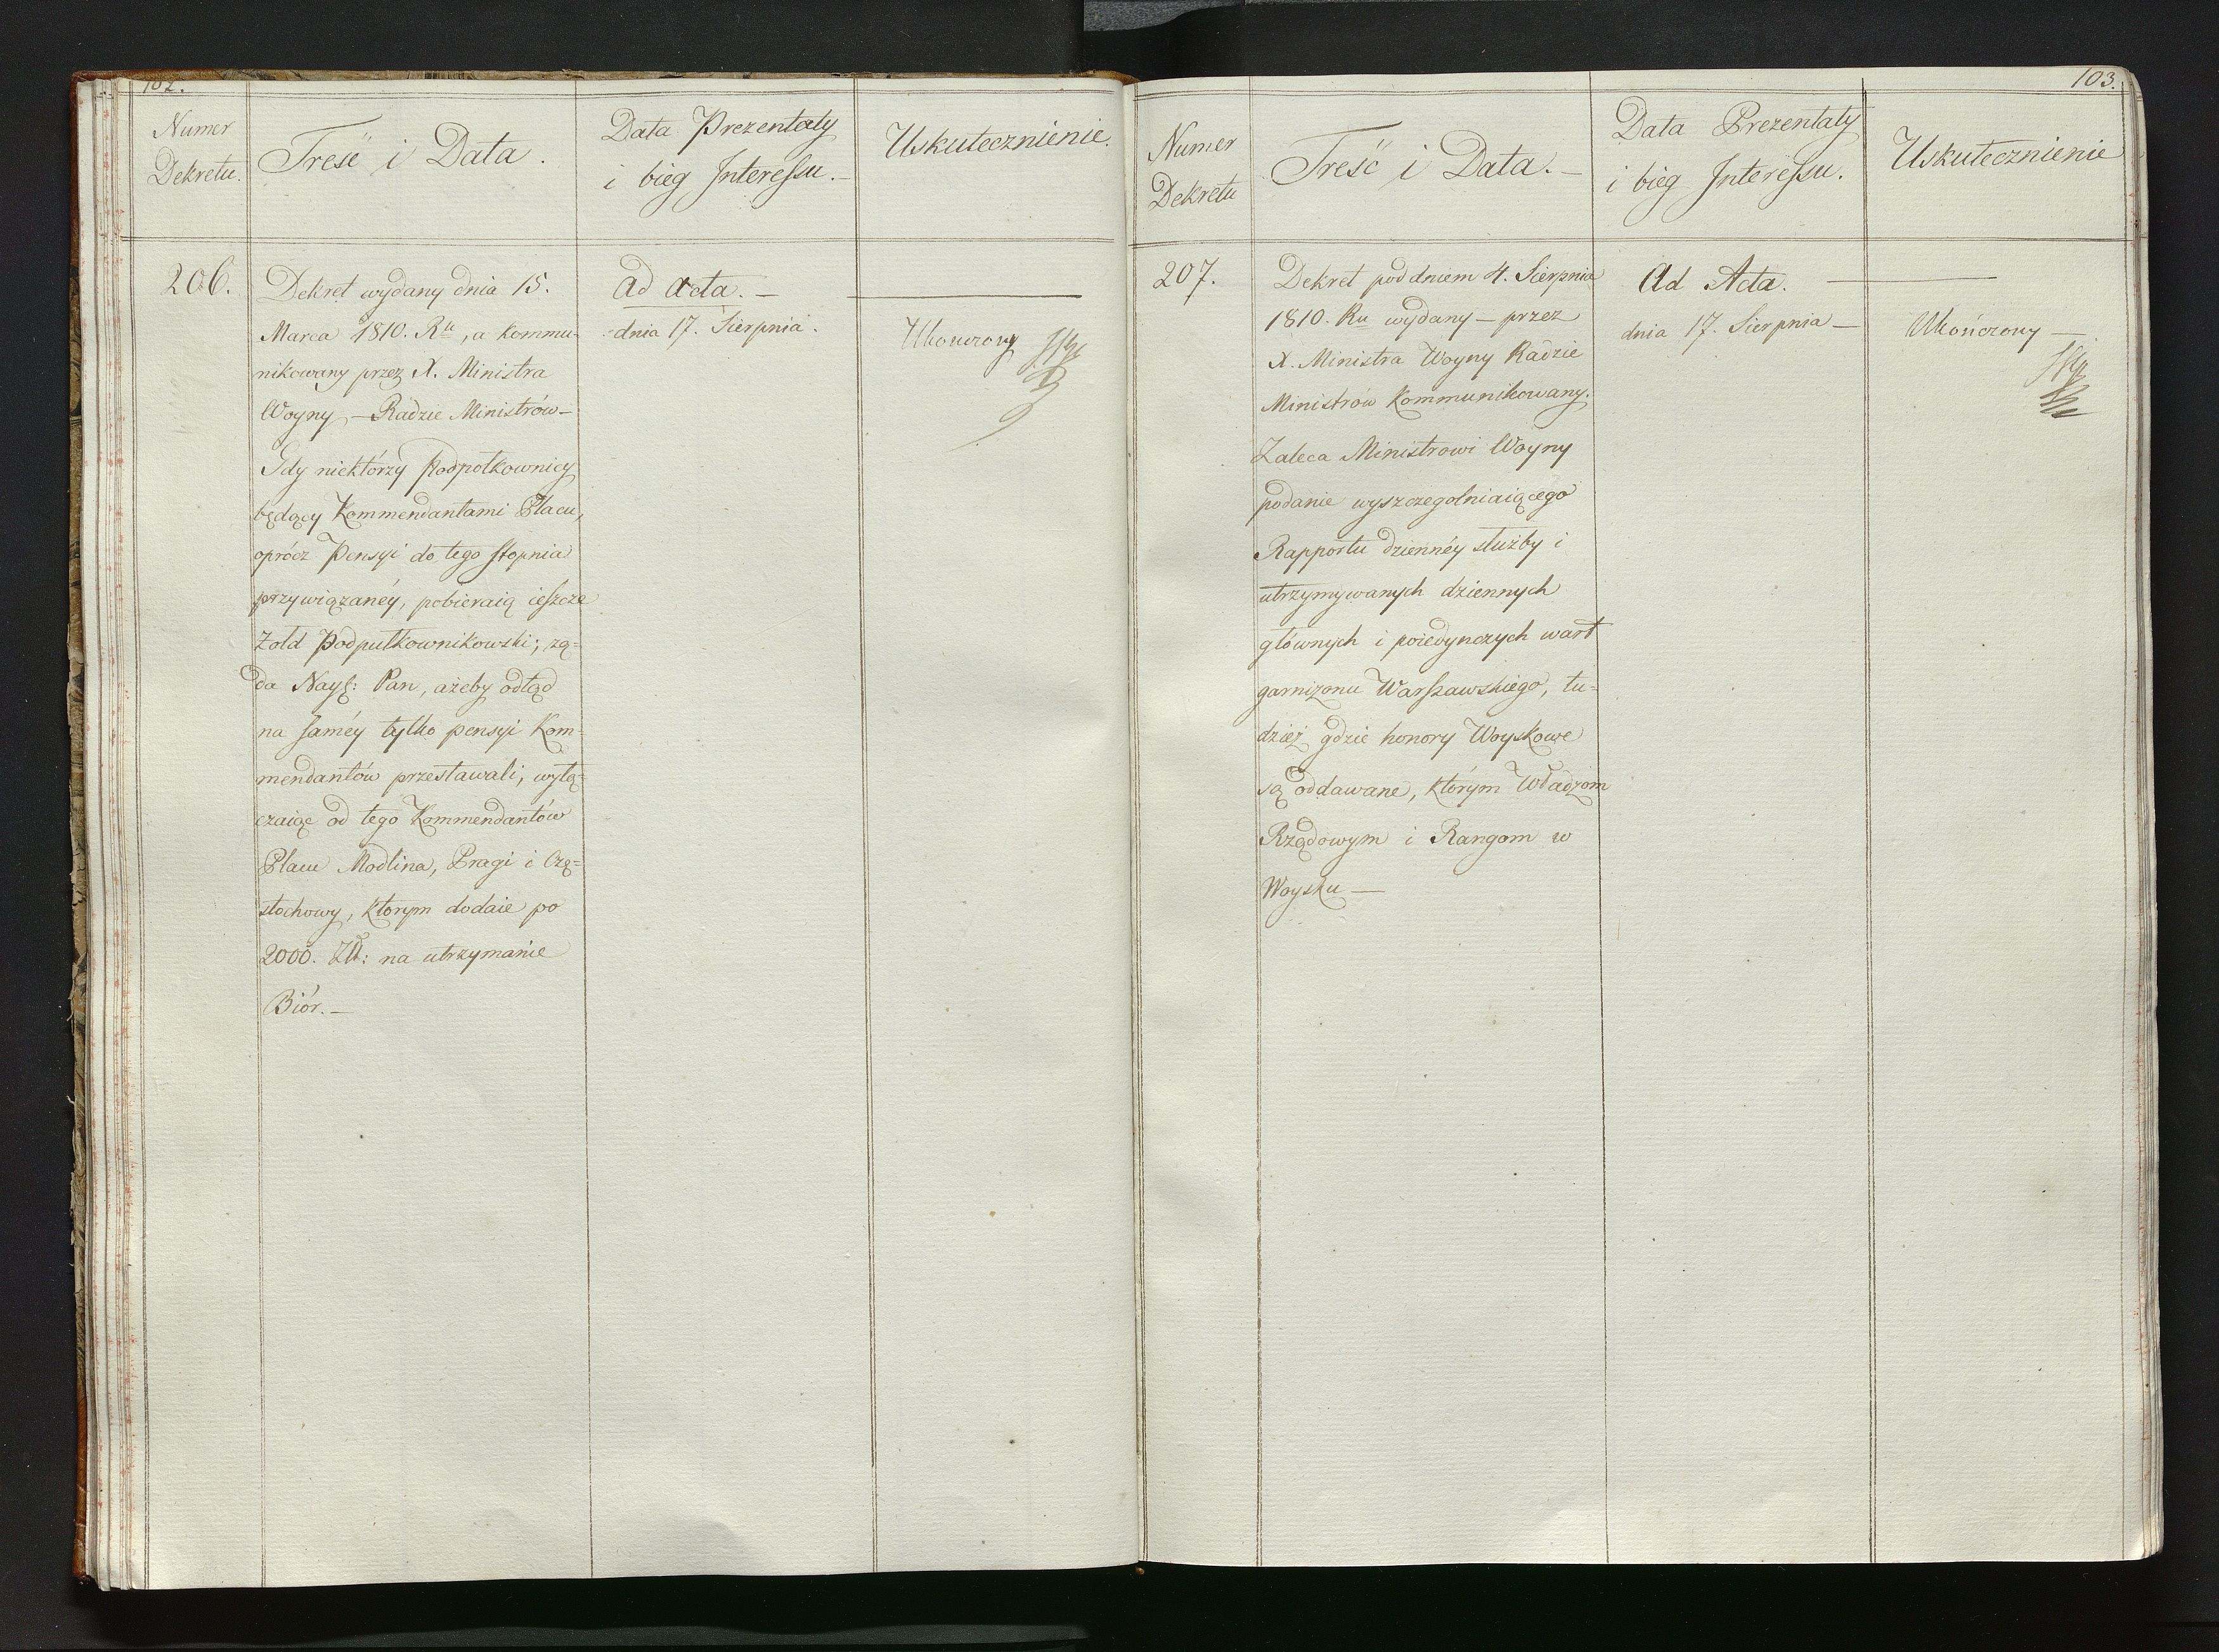 102.
Numer
Dekretu.
Treść i Data.
Data Prezentaty
i bieg Interessu.—
Uskutecznienie.
206.
Dekret wydany dnia 15.
Marca 1810. Ru, a kommu-
nikowany przez X. Ministra
Woyny — Radzie Ministrów —
Gdy niektórzy Podpołkownicy
będący Kommendantami Placu,
oprócz Pensyi do tego stopnia
przywiązanéy, pobieraią ieszcze
Zołd Podpułkownikowski; żą=
da Nayj: Pan, ażeby odtąd
na saméy tylko pensyi Kom-
mendantów przestawali, wyłą=
czaiąc od tego Kommendantów
Placu Modlina, Pragi i Czę=
stochowy, ktorym dodaie po
2000. Zł: na utrzymanie
Biór.—
ad acta.—
dnia 17. Sierpnia.
Ukonczony
103.
Numer
Dekretu
Treść i Data.—
Data Prezentaty
i bieg Interessu.
Uskutecznienie
207.
Dekret pod dniem 4. Sierpnia
1810. Ru wydany — przez
X. Ministra Woyny Radzie
Ministrów Kommunikowany.
Zaleca Ministrowi Woyny
podanie wyszczegolniaiącego
Rapportu dziennéy służby i
utrzymywanych dziennych
głównych i poiedynczych wart
garnizonu Warszawskiego, tu=
dzież gdzie honory Woyskowe
są oddawane, którym Władzom
Rządowym i Rangom w
Woysku —
Ad Acta.
dnia 17. Sierpnia —
Ukończony —